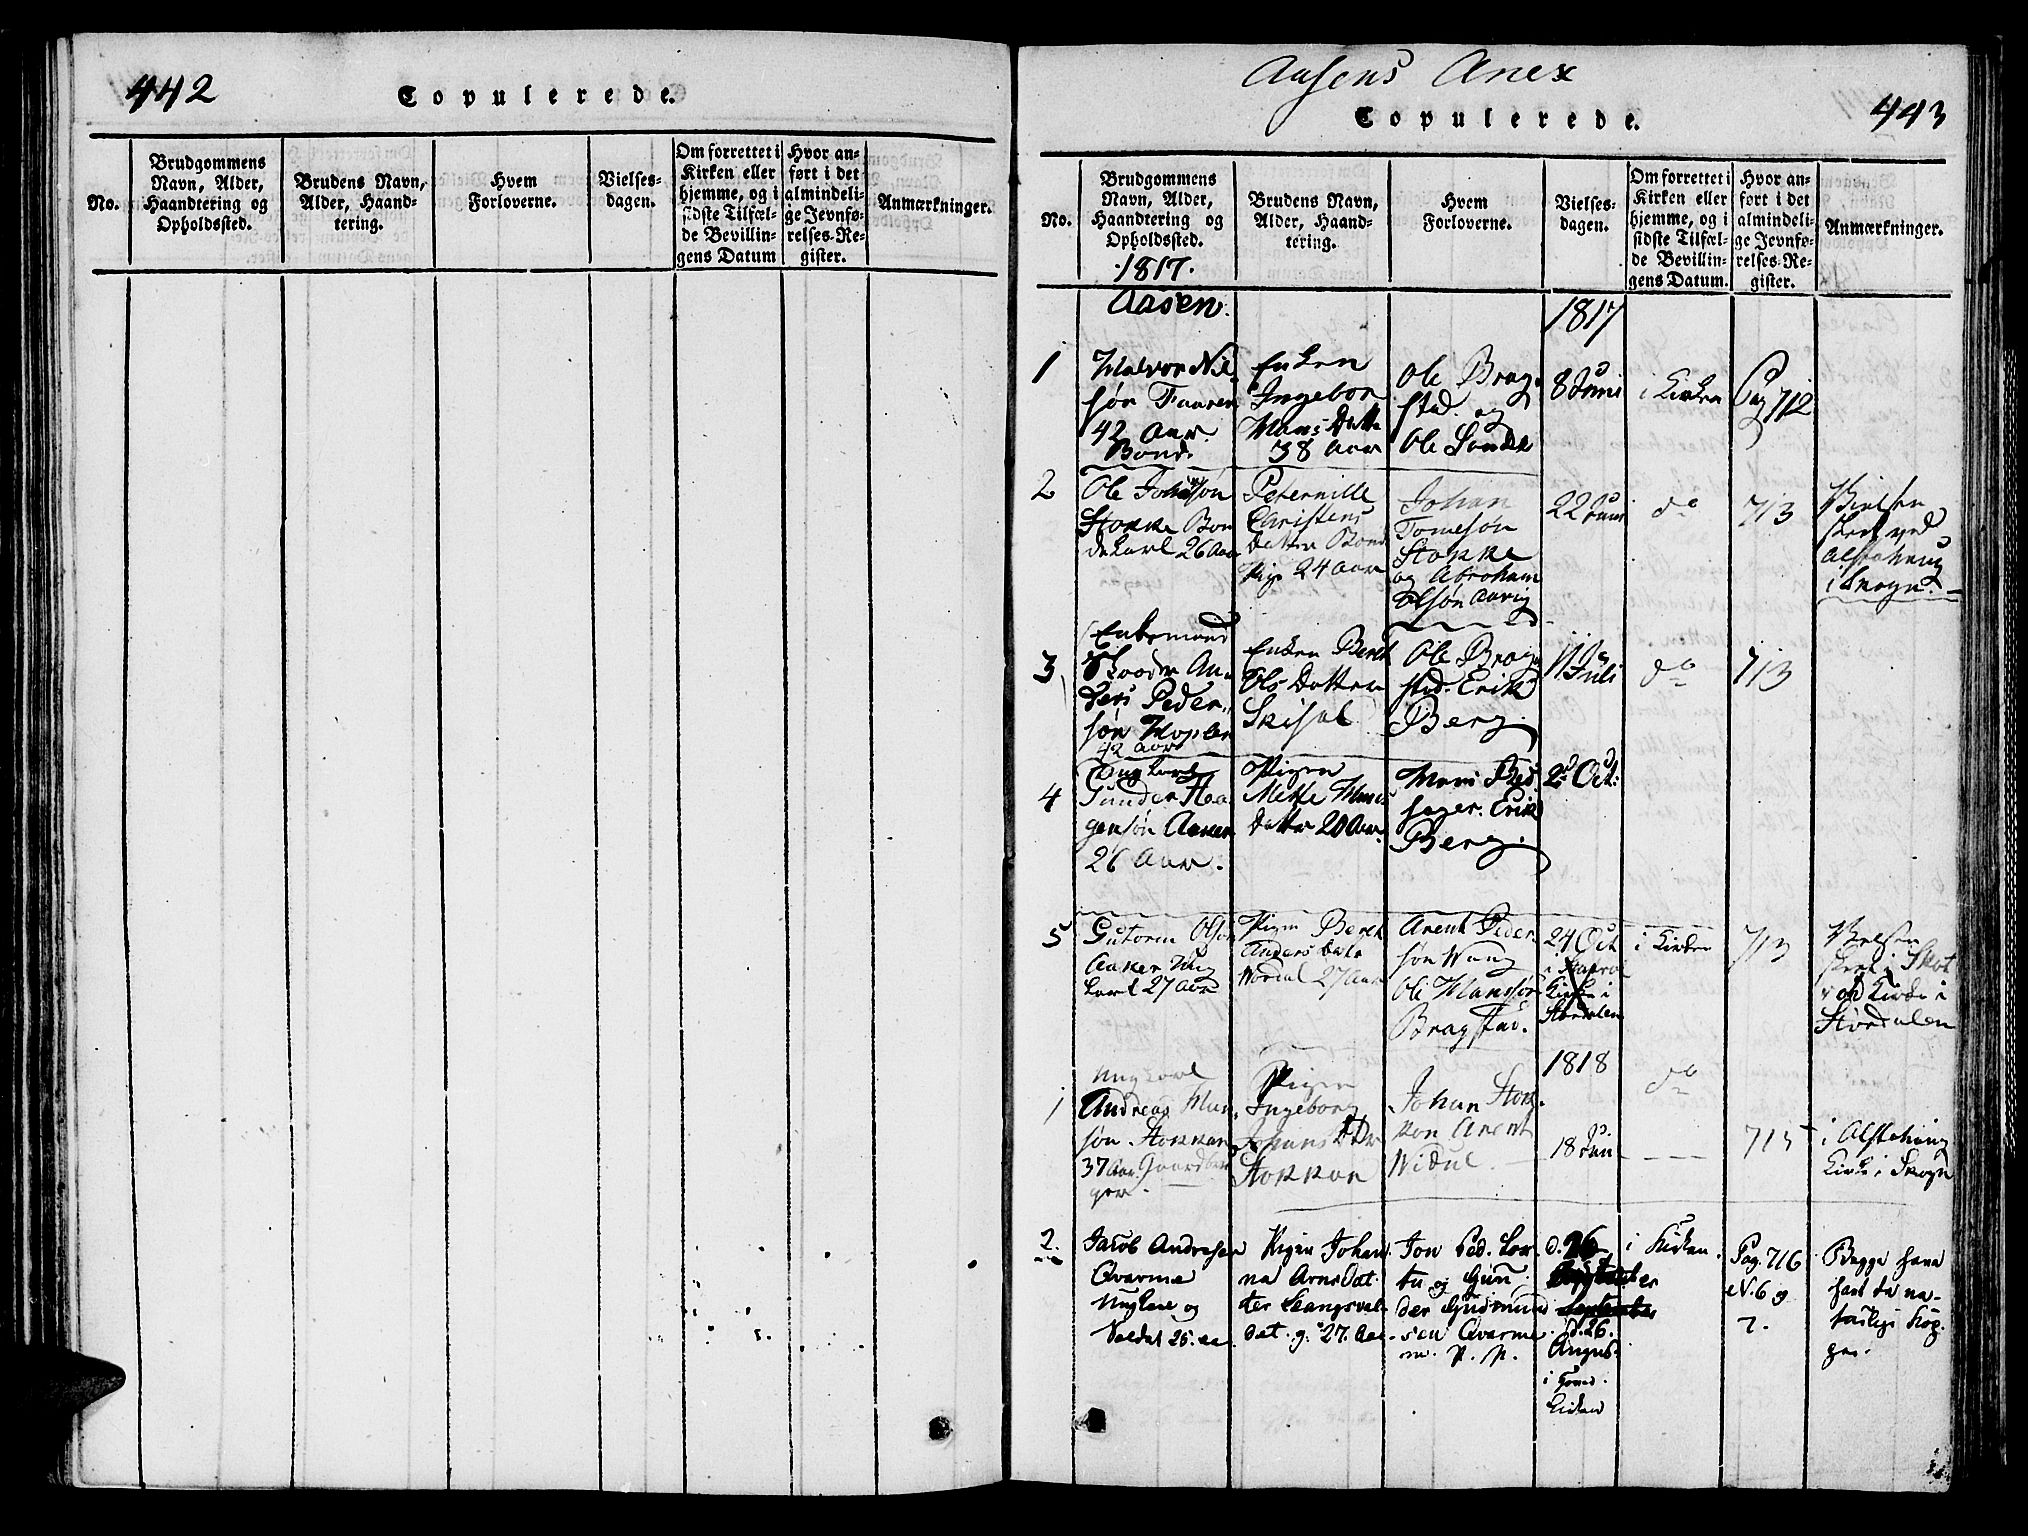 442
Copulerede.
No.
Brudgommens
Navn, Alder,
Haandtering og
Opholdssted.
Brudens Navn,
Alder, Haand-
tering.
Hvem
Forloverne.
Vielses-
dagen.
Om forrettet i
Kirken eller
hjemme, og i
sidste Tilfæl-
de Bevillin-
gens Datum
Hvor an-
ført i det
almindeli-
ge Jevnfø-
relses-Re-
gister.
Anmærkninger.
Aasens Anex
Copulerede.
443
No.
Brudgommens
Navn, Alder,
Haandtering og
Opholdssted.
Brudens Navn,
Alder, Haand-
tering.
Hvem
Forloverne.
Vielses-
dagen.
Om forrettet i
Kirken eller
hjemme, og i
sidste Tilfæl-
de Bevillin-
gens Datum.
Hvor an-
ført i det
almindeli-
ge Jevnfø-
relses-Re-
gister.
Anmærkninger.
1817.
Aasen.
1817
1
Halvor Nil-
søn Faaren
42 Aar.
Bond.
Enken
Ingebor
Hans Datte
38 Aar
Ole Brag-
stad og
Ole Sunde
8 Juni
i Kirken
Pag 712
2
Ole Johansøn
Stokke Bon
dekarl 26 Aar
Peternille
Christens
Datter Bond
Pige 24 Aar
Johan
Tomesøn
Stokke
og Abraham
Olsøn Aarig
22 Juni
do
713
Vielsen
skeet ved
Alstahaug
i Skogn.
3
Enkemand
Anders Peder-
søn Hopler
42 Aar
Enken Beret
Ols Datter
Skisal
Ole Brag-
stad. Erik
Berg.
11 Juli
do
713
4
Ung karl
Gunder Haa-
gensøn Aaker
26 Aar.
Pigen
Mette Hans
Datter 20 Aar.
Hans
Erik
Berg.
2d Oct:
5
Gutorm Olsøn
Aaker Ung
karl 27 Aar
Pigen Beret
Anders Datr
Wordal 27 Aar
Arent Peder-
søn Wang
Ole Hansøn
Bragstad.
24 Oct
i
Kirke i
Størdalen
i Kirken
713
Vielsen
skeet i Skat
vold Kirke i
Størdalen
1818
1
Ung karl
Andreas Han-
søn Stokkan
37 Aar Gaardbru
ger.
Pigen
Ingeborg
Johans Datr
Stokkan
Johan Stok-
kan Arent
Widal.
18 Juni
do
715
i Alstahaug
Kirke i Skogn
2.
Jacob Andresen
Qvarme
Ungkarl og
Soldat 25. aa.
Pigen Johan
na Arnsdat-
ter
dat. g. 27. Aar.
Jon Ped. Lor
tu og Gun-
der Gudmund
sen Qvarme
d. 26
September
d. 26.
Augus-
i
Kirken
i Kirken.
Pag. 716
N. 6 og
7.
Begge have
havt de na-
turlige Kop-
per.